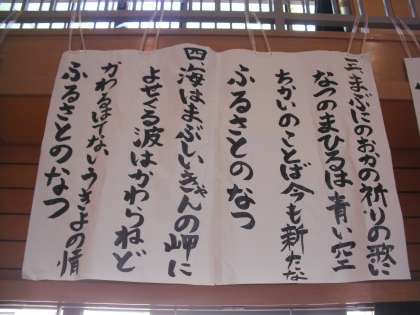 三 まぶにのおかの祈りの歌に
なつのまひるは青い空
ちかいのことば今も新たな
ふるさとのなつ
四 海はまぶしいきゃんの岬に
よせくる波はかわらねど
かわるはてないうきよの情
ふるさとのなつ